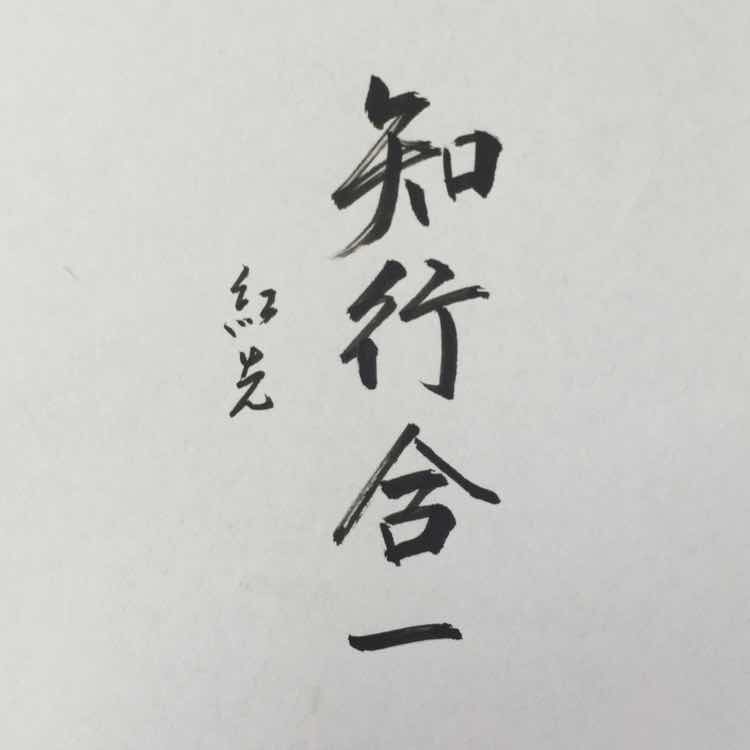 知行合一
紅先